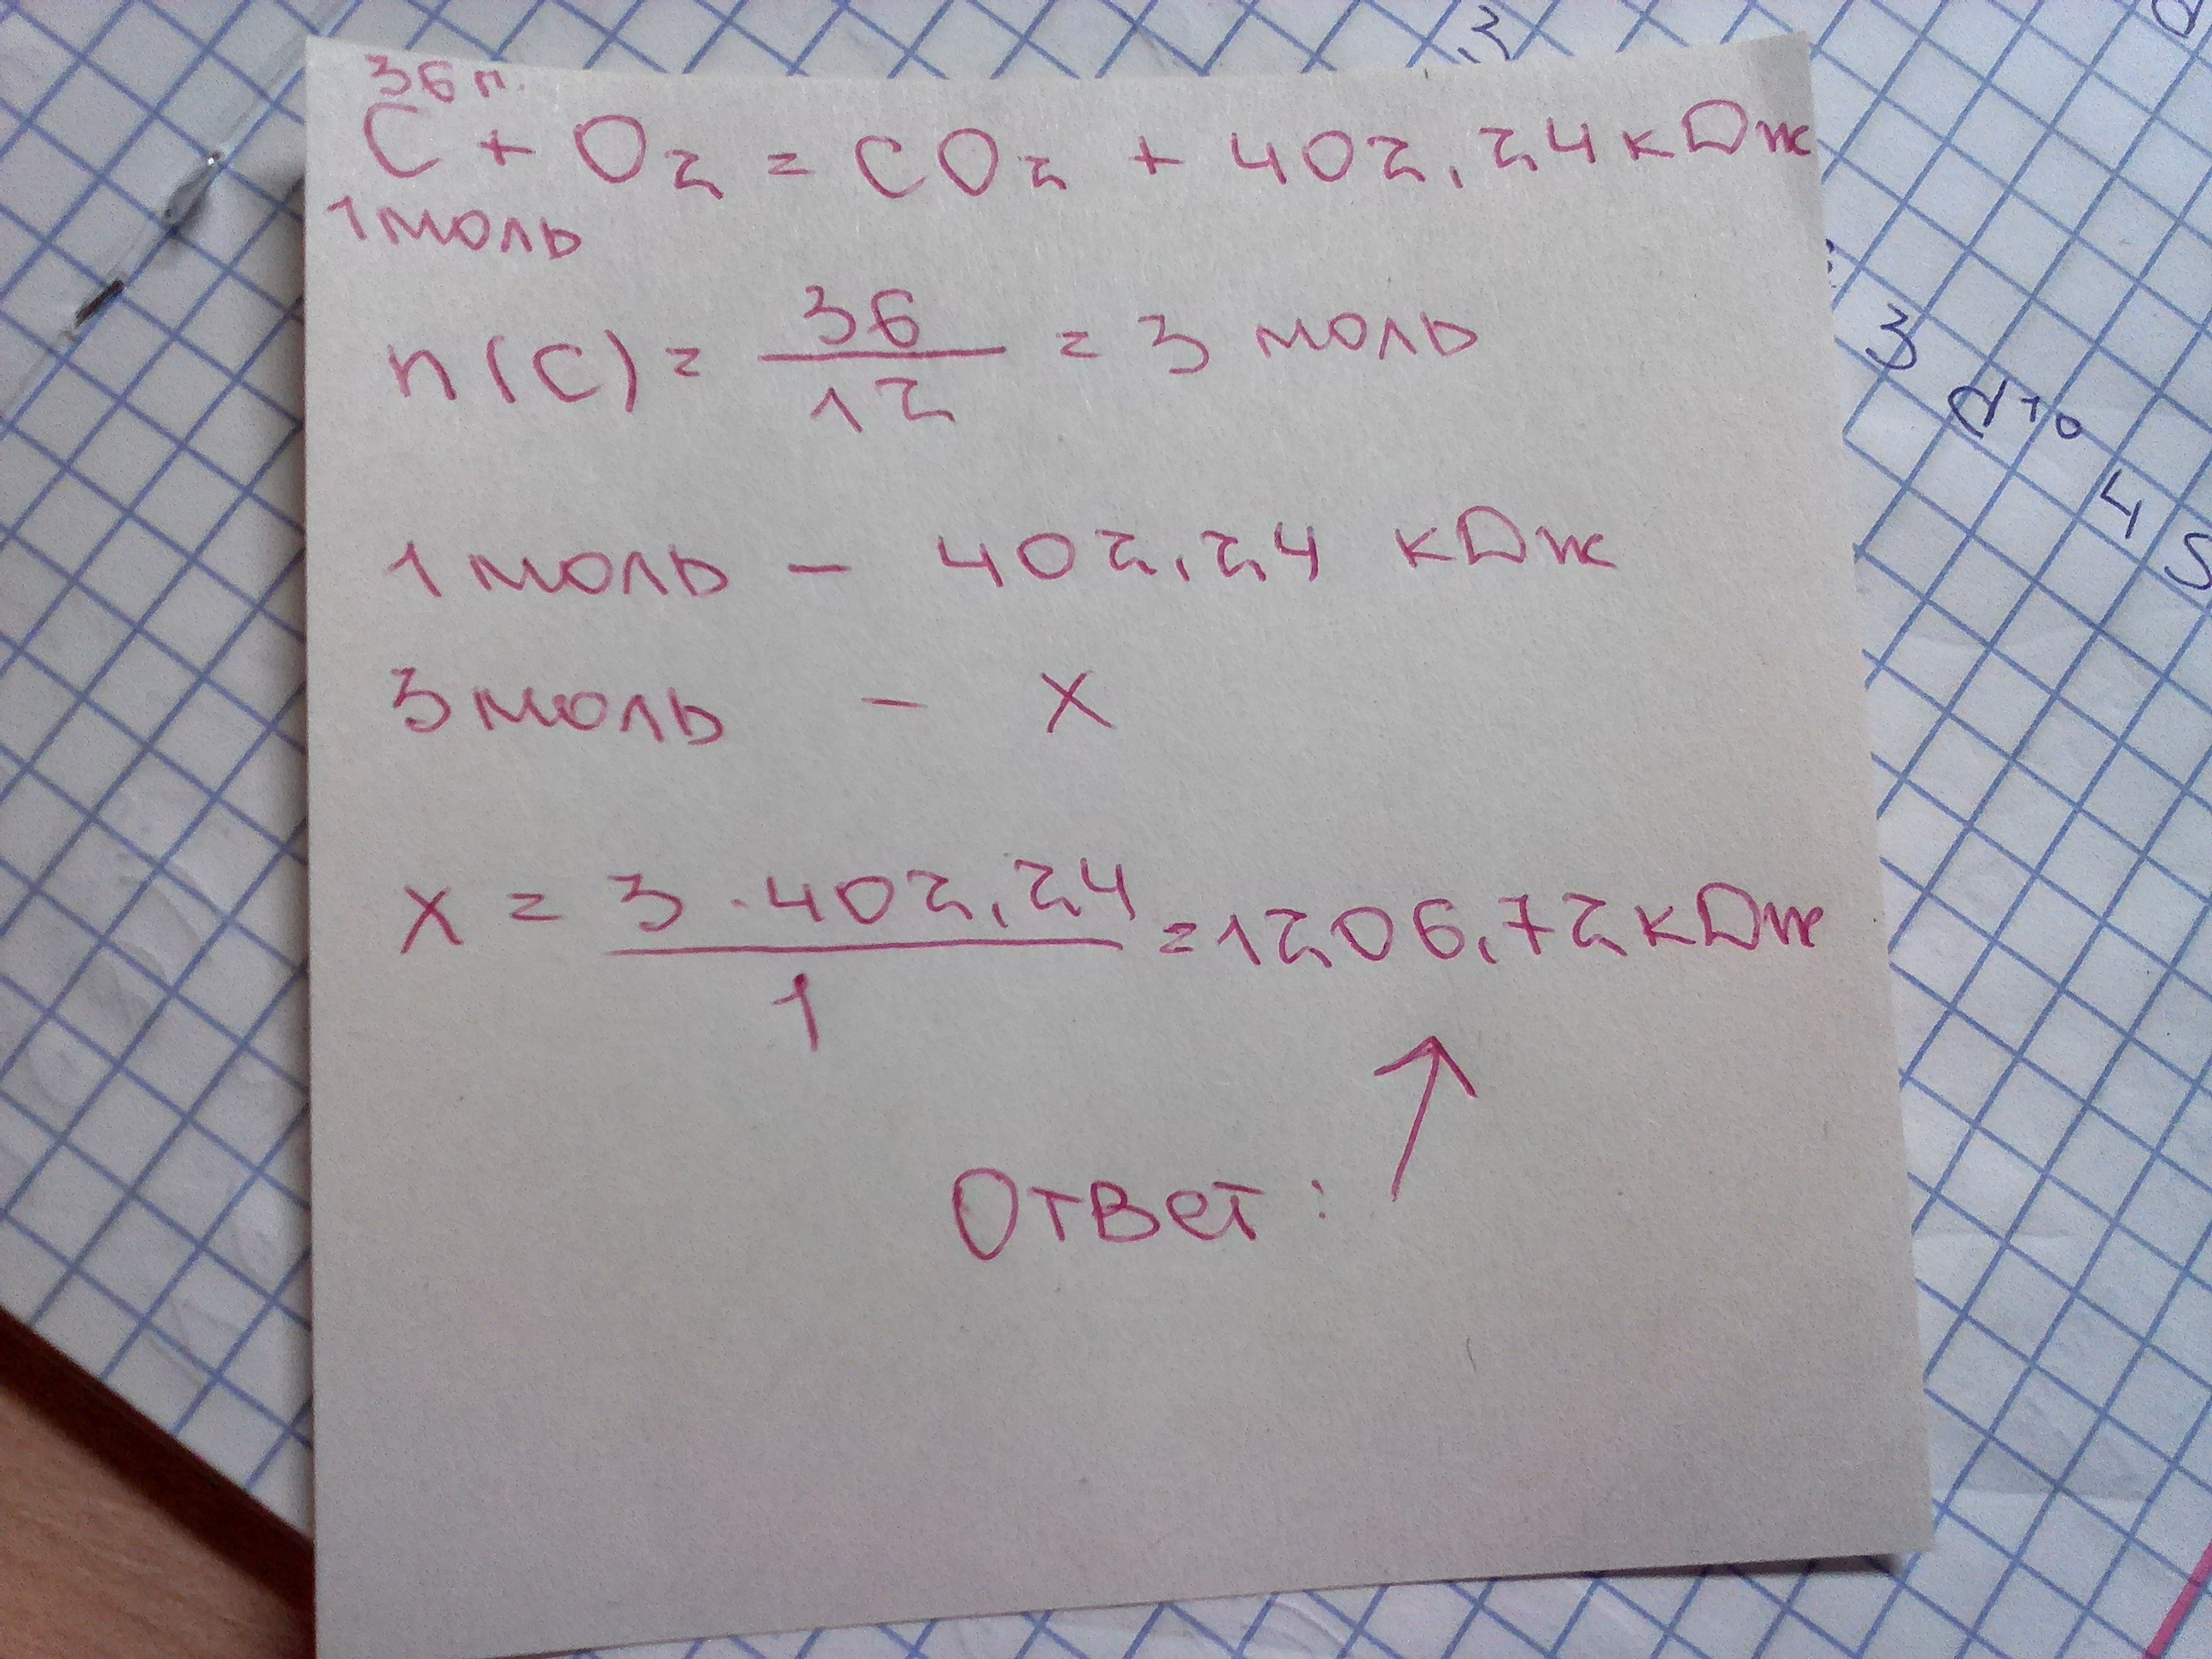 36 г.
C + O2 = CO2 + 402,24 кДж
1 моль
n(C) = 36/12 = 3 моль
1 моль – 402,24 кДж
3 моль – x
x = 3·402,24/1 = 1206,72 кДж
Ответ: ↑
3
3
d10
4s